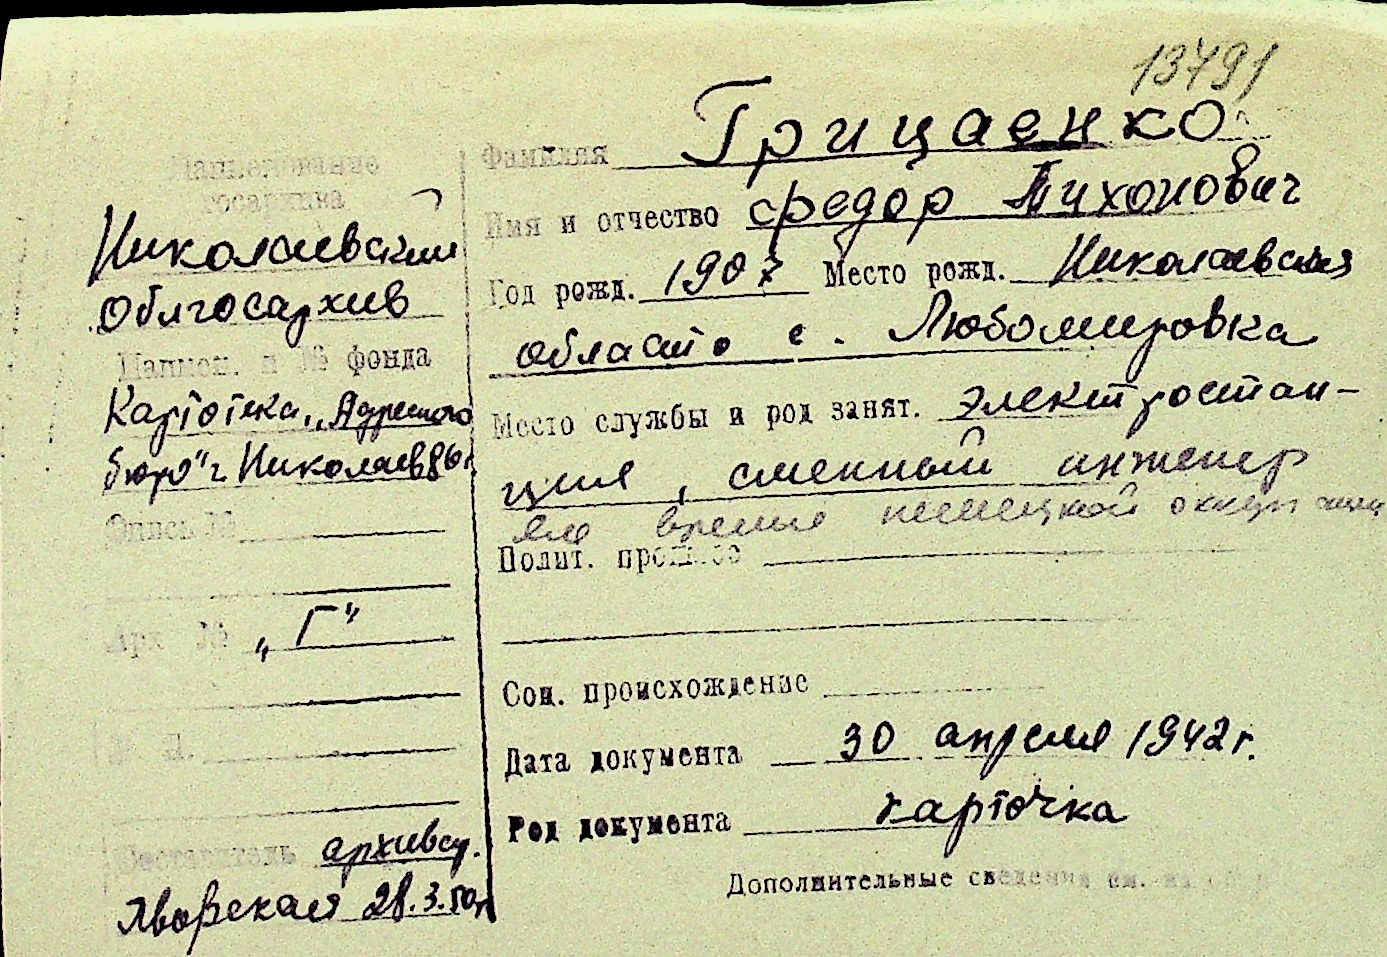 13791
Наименование
госархива
Николаевский
Облгосархив
Наимен. и № фонда
Картотека „Адресного
бюро" г. Николаев
Опись №
Арх №
„Г"
Составитель архивсу.
Яворская 28.3.50г
Фамилия Грицаенко
Имя и отчество Федор Тихонович
Год рожд. 1907 Место рожд. Николаевская
область с. Любомировка
Место службы и род занят. электростан-
ция, сменный инженер
во время немецкой оккупации
Полит. прошлое
Соц. происхождение
Дата документа 30 апреля 1942 г.
Род документа карточка
Дополнительные сведения см. на